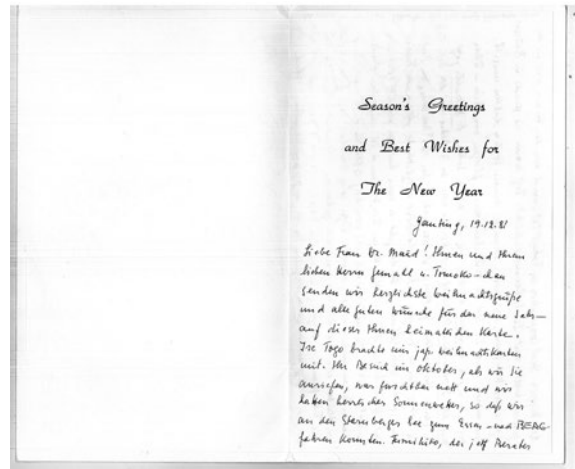 Season's Greetings
and Best Wishes for
The New Year
Gauting, 19.12.81
Liebe Frau Dr. Maád! Ihnen und Ihrem
lieben Herrn Gemahl u. Tomoko-chan
senden wir herzlichste Weihnachtsgrüße
und alle guten Wünsche für das neue Jahr –
auf dieser Ihnen heimatlichen Karte.
Ise Togo brachte mir jap. Weihnachtskarten
mit. Ihr Besuch im Oktober, als wir Sie
anriefen, war furchtbar nett und wir
hatten herrliches Sonnenwetter, so daß wir
an den Starnberger See zum Essen – nach BERG
fahren konnten. Fumihiko, der jetzt Berater